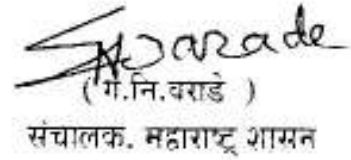 ( ग.नि.वराडे )
संचालक. महाराष्ट्र शासन